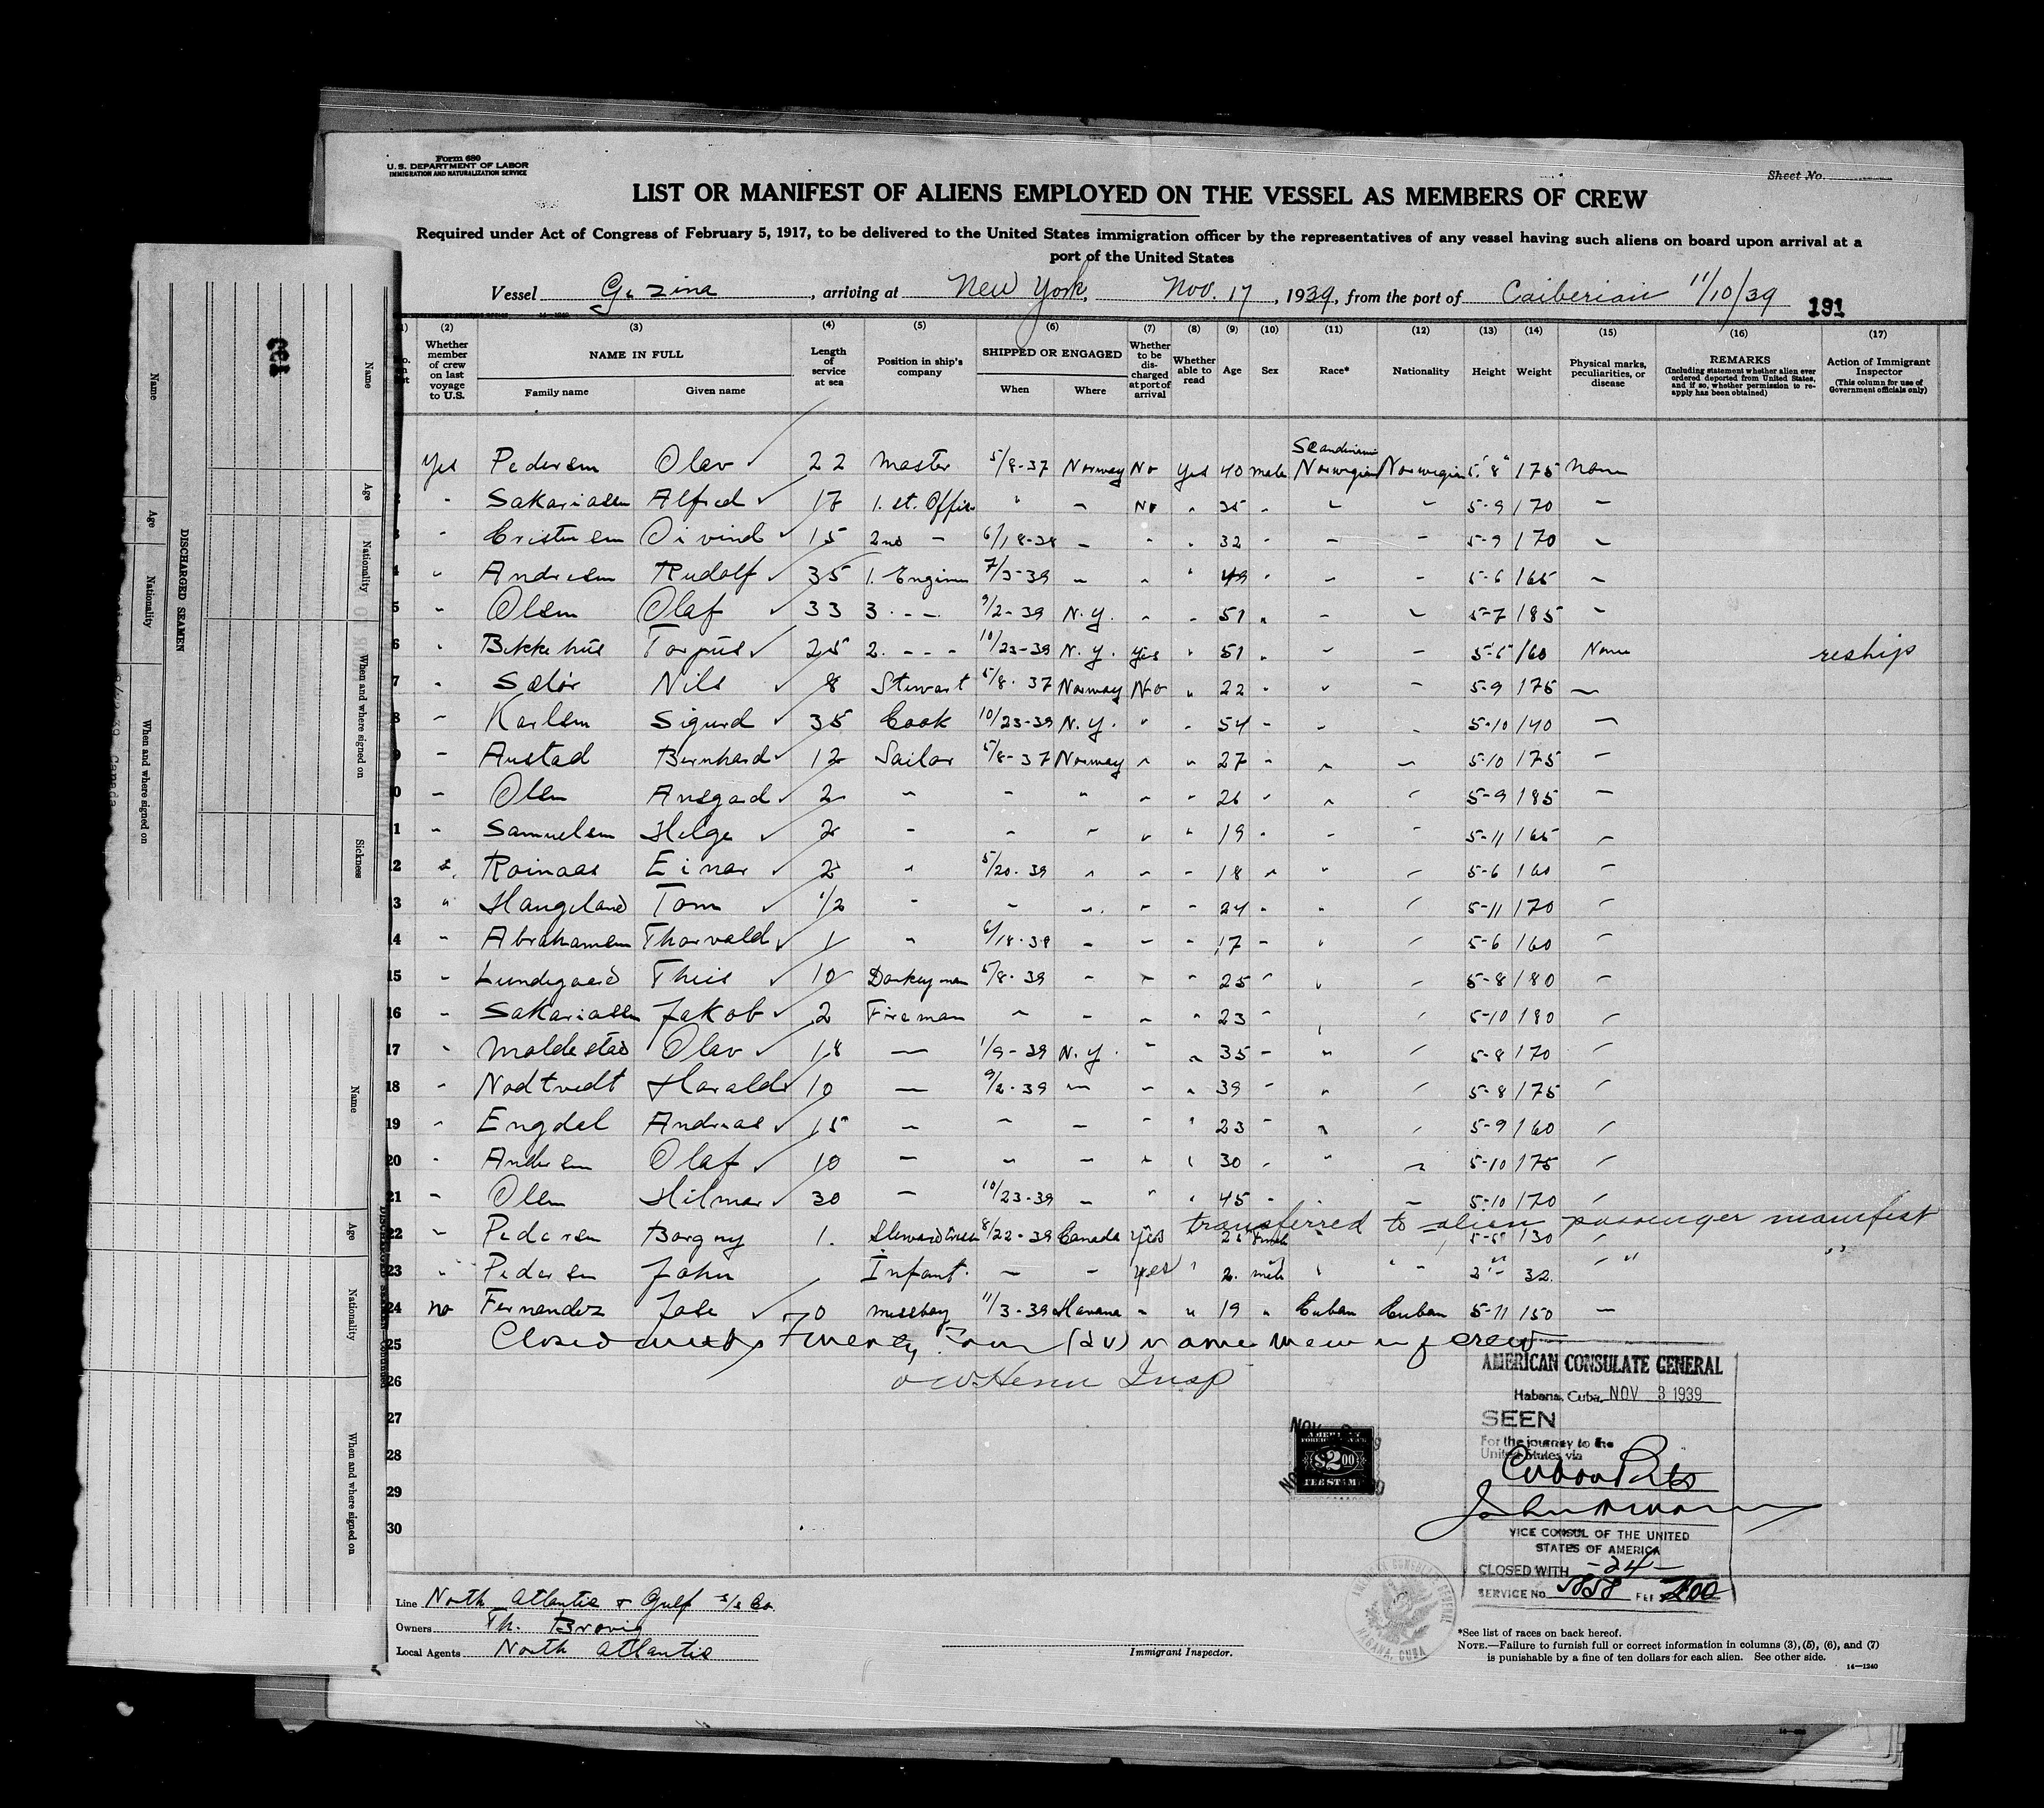 Form 680
U. S. DEPARTMENT OF LABOR
IMMIGRATION AND NATURALIZATION SERVICE
Sheet No.
LIST OR MANIFEST OF ALIENS EMPLOYED ON THE VESSEL AS MEMBERS OF CREW
Required under Act of Congress of February 5, 1917, to be delivered to the United States immigration officer by the representatives of any vessel having such aliens on board upon arrival at a
port of the United States
Vessel Gezina, arriving at New York, Nov. 17, 1939, from the port of Caiberian 11/10/39 191
(2) (3) (4) (5) (6) (7) (8) (9) (10) (11) (12) (13) (14) (15) (16) (17)
Whether member of crew on last voyage to U.S. NAME IN FULL Family name Given name Length of service at sea Position in ship's company SHIPPED OR ENGAGED When Where Whether to be discharged at port of arrival Whether able to read Age Sex Race* Nationality Height Weight Physical marks, peculiarities, or disease REMARKS (Including statement whether alien ever ordered deported from United States, and if so, whether permission to reapply has been obtained) Action of Immigrant Inspector (This column for use of Government officials only)
Yes Pedersen Olav 22 Master 5/8-37 Norway No Yes 40 male Scandinavian Norwegian Norwegian 5'8" 175 None
Sakariassen Alfred 17 1. st. Officer " No 35 5-9 170
Cristensen Oivind 15 2nd 6/18-38 32 5-9 170
Andresen Rudolf 35 1. Engineer 7/3-39 49 5-6 165
5 Olsen Olaf 33 3. 9/2-39 N.Y. 51 5-7 185
6 Bekkehus Torjus 25 2. 10/23-39 N.Y. Yes 51 5-5 160 None reship
7 Nils 8 Stewart 5/8-37 Norway No 22 5-9 175
8 Karlsen Sigurd 35 Cook 10/23-39 N.Y. 54 5-10 140
9 Austad Bernhard 12 Sailor 5/8-37 Norway 27 5-10 175
0 Olsen Ansgad 2 26 5-9 185
1 Samuelsen Helge 2 19 5-11 165
2 Roinaas Einar 2 5/20-39 18 5-6 160
3 Haugeland Tom 1/2 24 5-11 170
4 Abrahamsen Thorvald 1 6/18-39 17 5-6 160
15 Lundegaard Theis 10 Donkeyman 5/8-39 25 5-8 180
16 Sakariassen Jakob 2 Fireman 23 5-10 180
17 Moldestad Olav 18 1/9-39 N.Y. 35 5-8 170
18 Nodtvedt Harald 10 9/2-39 39 5-8 175
19 Engdal Andreas 15 23 5-9 160
20 Andersen Olaf 10 30 5-10 175
21 Olsen Hilmar 30 10/23-39 45 5-10 170
transferred to alien passenger manifest
22 Pedersen Borgny 1. 8/22-39 Canada Yes 5-5 130
23 Pedersen John Infant. Yes 2. male 32.
24 No Fernandez Jose 0 messboy 11/3-39 Havana 19 Cuban Cuban 5-11 150
25 Closed with Twenty Four (24) names of crew
26 Insp
27
28
29
30
AMERICAN CONSULATE GENERAL
Habana, Cuba, NOV 3 1939
SEEN
For the journey to the
United States via
Cuban Ports
VICE CONSUL OF THE UNITED
STATES OF AMERICA
CLOSED WITH -24-
SERVICE No. 5858 FEE 200
AMERICAN
FOREIGN SERVICE
$2.00
FEE STAMP
AMERICAN CONSULATE GENERAL HABANA, CUBA
Line North Atlantic & Gulf S/S Co.
Owners Th. Brovig
Local Agents North Atlantic
Immigrant Inspector.
*See list of races on back hereof.
NOTE.—Failure to furnish full or correct information in columns (3), (5), (6), and (7)
is punishable by a fine of ten dollars for each alien. See other side.
14—1240
193
DISCHARGED SEAMEN
Name Age Nationality When and where signed on
Name Age Nationality When and where signed on Sickness
Name Age Nationality When and where signed on